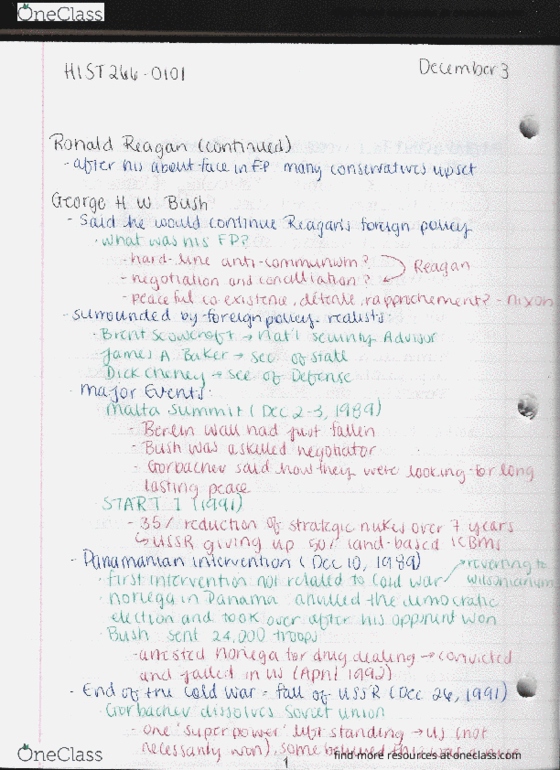 OneClass
HIST 266-0101
December 3
Ronald Reagan (continued)
- after his about-face in FP many conservatives upset
George H W Bush
- Said he would continue Reagan's foreign policy
· what was his FP?
- hard-line anti-communism?
- negotiation and conciliation?
Reagan
- peaceful co existence, détente, rapprochement? - Nixon
- surrounded by foreign policy realists:
· Brent Scowcroft → Nat'l Security Advisor
· James A Baker → sec of state
· Dick Cheney → sec of Defense
- Major Events:
· Malta Summit (Dec 2-3, 1989)
- Berlin wall had just fallen
- Bush was a skilled negotiator
- Gorbachev said how they were looking for long
lasting peace
· START I (1991)
- 35% reduction of strategic nukes over 7 years
↳ USSR giving up 50% land-based ICBMs
- Panamanian intervention (Dec 10, 1989)
· first intervention not related to Cold War → reverting to
Wilsonianism
· noriega in Panama anulled the democratic
election and took over after his opponent won
· Bush sent 24,000 troops
- arrested Noriega for drug dealing → convicted
and jailed in US (April 1992)
- End of the Cold War - fall of USSR (Dec 26, 1991)
· Gorbachev dissolves Soviet union
- one 'superpower' left standing → US (not
necessarily won), some believed this was
OneClass
1
find more resources at oneclass.com